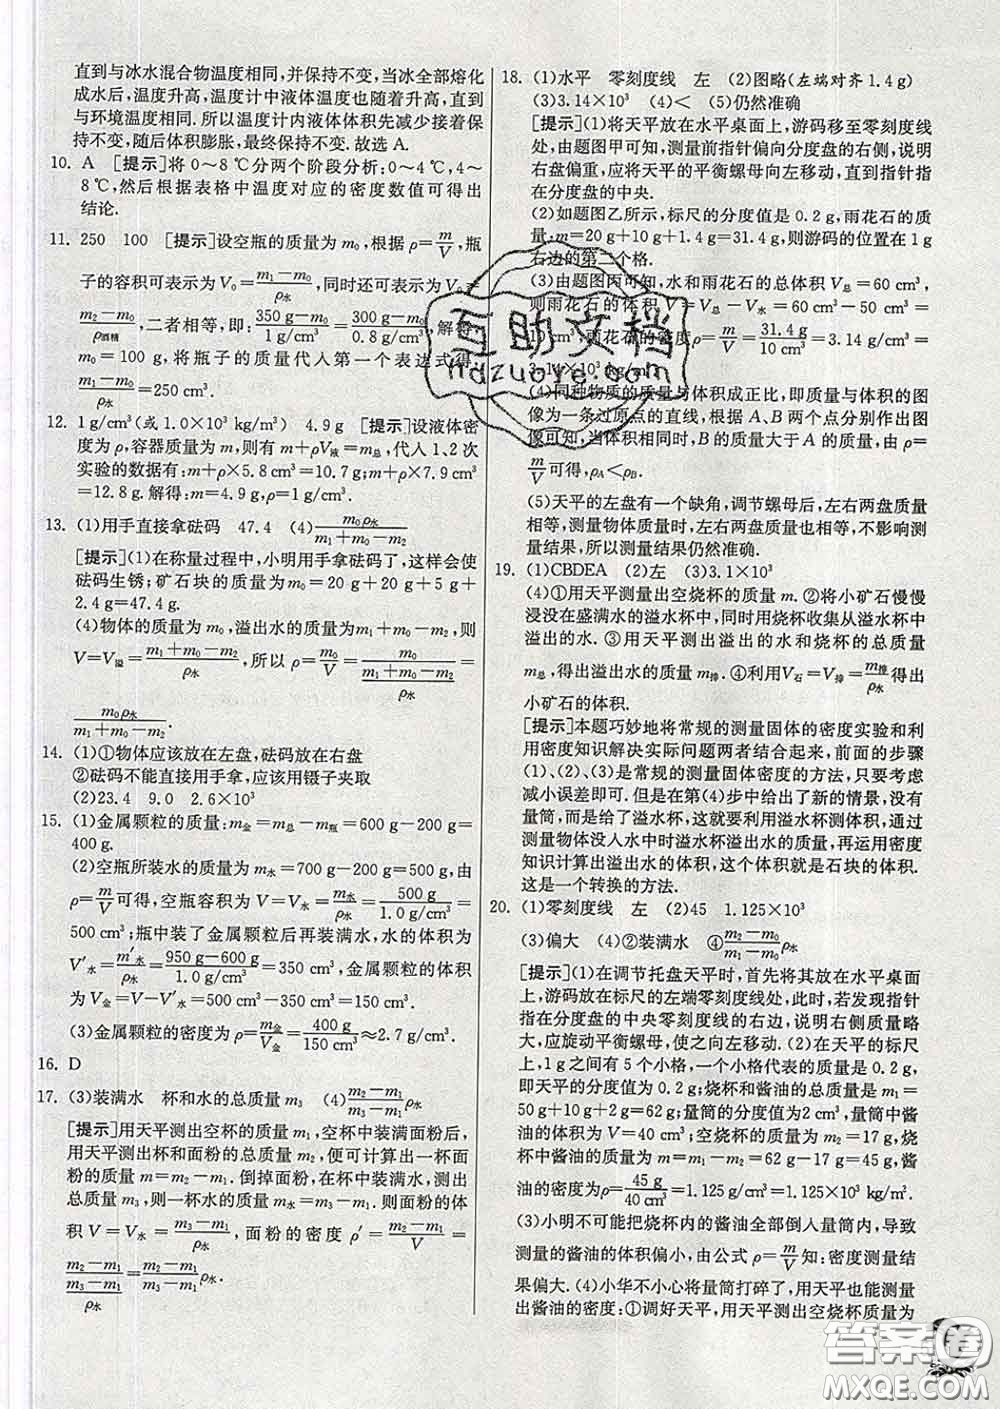 直到与冰水混合物温度相同,并保持不变,当冰全部熔化
成水后,温度升高,温度计中液体温度也随着升高,直到
与环境温度相同. 所以温度计内液体体积先减少接着保
持不变,随后体积膨胀,最终保持不变. 故选 A.
10. A [提示]将 0～8 ℃分两个阶段分析:0～4 ℃,4～
8 ℃,然后根据表格中温度对应的密度数值可得出
结论.
11. 250 100 [提示]设空瓶的质量为 m₀,根据 ρ=m/V,瓶
子的容积可表示为 V₀=(m₁-m₀)/ρ水,同时还可表示为 V₀=
(m₂-m₀)/ρ酒精,二者相等,即:(350 g-m₀)/(1 g/cm³)=(300 g-m₀)/(0.8 g/cm³),解得
m₀=100 g,将瓶子的质量代入第一个表达式得
(m₁-m₀)/ρ水=250 cm³.
12. 1 g/cm³(或 1.0×10³ kg/m³) 4.9 g [提示]设液体密
度为 ρ,容器质量为 m,则有 m+ρV液=m总,代入 1、2 次
实验的数据有:m+ρ×5.8 cm³=10.7 g;m+ρ×7.9 cm³
=12.8 g. 解得:m=4.9 g,ρ=1 g/cm³.
13. (1)用手直接拿砝码 47.4 (4)m₀ρ水/(m₁+m₀-m₂)
[提示](1)在称量过程中,小明用手拿砝码,这样会使
砝码生锈;矿石块的质量为 m₀=20 g+20 g+5 g+
2.4 g=47.4 g.
(4)物体的质量为 m₀,溢出水的质量为m₁+m₀-m₂,则
V=V溢=(m₁+m₀-m₂)/ρ水,所以 ρ=m/V=m₀/((m₁+m₀-m₂)/ρ水)=
m₀ρ水/(m₁+m₀-m₂).
14. (1)①物体应该放在左盘,砝码放在右盘
②砝码不能直接用手拿,应该用镊子夹取
(2)23.4 9.0 2.6×10³
15. (1)金属颗粒的质量:m金=m总-m瓶=600 g-200 g=
400 g.
(2)空瓶所装水的质量为 m水=700 g-200 g=500 g,由
ρ=m/V可得,空瓶容积为 V=V水=m水/ρ水=500 g/(1.0 g/cm³)=
500 cm³;瓶中装了金属颗粒后再装满水,水的体积为
V′水=m′水/ρ水=(950 g-600 g)/(1.0 g/cm³)=350 cm³,金属颗粒的体积
为 V金=V-V′水=500 cm³-350 cm³=150 cm³.
(3)金属颗粒的密度为 ρ=m金/V金=400 g/150 cm³≈2.7 g/cm³.
16. D
17. (3)装满水 杯和水的总质量 m₃ (4)(m₂-m₁)/(m₃-m₁)ρ水
[提示]用天平测出空杯的质量 m₁,空杯中装满面粉后,
用天平测出杯和面粉的总质量 m₂,便可计算出一杯面
粉的质量 m=m₂-m₁. 倒掉面粉,在杯中装满水,测出
总质量 m₃,则一杯水的质量 m水=m₃-m₁. 则面粉的体
积 V=V水=(m₃-m₁)/ρ水,面粉的密度 ρ′=(m₂-m₁)/V=
(m₂-m₁)/((m₃-m₁)/ρ水)=(m₂-m₁)/(m₃-m₁)ρ水.
18. (1)水平 零刻度线 左 (2)图略(左端对齐 1.4 g)
(3)3.14×10³ (4)< (5)仍然准确
[提示](1)将天平放在水平桌面上,游码移至零刻度线
处,由题图甲可知,测量前指针偏向分度盘的右侧,说明
右盘偏重,应将天平的平衡螺母向左移动,直到指针指
在分度盘的中央.
(2)如题图乙所示,标尺的分度值是 0.2 g,雨花石的质
量:m=20 g+10 g+1.4 g=31.4 g,则游码的位置在 1 g
右边的第二个格.
(3)由题图丙可知,水和雨花石的总体积 V总=60 cm³,
则雨花石的体积 V=V总-V水=60 cm³-50 cm³=
10 cm³,雨花石的密度 ρ=m/V=31.4 g/10 cm³=3.14 g/cm³=
3.14×10³ kg/m³.
(4)同种物质的质量与体积成正比,即质量与体积的图
像为一条过原点的直线,根据 A、B 两个点分别作出图
像可知,当体积相同时,B 的质量大于 A 的质量,由 ρ=
m/V可得,ρA<ρB.
(5)天平的左盘有一个缺角,调节螺母后,左右两盘质量
相等,测量物体质量时,左右两盘质量也相等,不影响测
量结果,所以测量结果仍然准确.
19. (1)CBDEA (2)左 (3)3.1×10³
(4)①用天平测量出空烧杯的质量 m. ②将小矿石慢慢
浸没在盛满水的溢水杯中,同时用烧杯收集从溢水杯中
溢出的水. ③用天平测出溢出的水和烧杯的总质量
m总,得出溢出水的质量 m排. ④利用V石=V排=m排/ρ水得出
小矿石的体积.
[提示]本题巧妙地将常规的测量固体的密度实验和利
用密度知识解决实际问题两者结合起来,前面的步骤
(1)、(2)、(3)是常规的测量固体密度的方法,只要考虑
减小误差即可. 但是在第(4)步中给出了新的情景,没有
量筒,而是给了溢水杯,这就要利用溢水杯测体积,通过
测量物体没入水中时溢水杯溢出水的质量,再运用密度
知识计算出溢出水的体积,这个体积就是石块的体积.
这是一个转换的方法.
20. (1)零刻度线 左 (2)45 1.125×10³
(3)偏大 (4)②装满水 ④(m₂-m₀)/(m₁-m₀)ρ水
[提示](1)在调节托盘天平时,首先将其放在水平桌面
上,游码放在标尺的左端零刻度线处,此时,若发现指针
指在分度盘的中央零刻度线的右边,说明右侧质量略
大,应旋动平衡螺母,使之向左移动. (2)在天平的标尺
上,1 g 之间有 5 个小格,一个小格代表的质量是 0.2 g,
即天平的分度值为 0.2 g;烧杯和酱油的总质量 m₁=
50 g+10 g+2 g=62 g;量筒的分度值为2 cm³,量筒中酱
油的体积为 V=40 cm³;空烧杯的质量为 m₂=17 g,烧
杯中酱油的质量为 m=m₁-m₂=62 g-17 g=45 g,酱
油的密度为ρ=45 g/40 cm³=1.125 g/cm³=1.125×10³ kg/m³.
(3)小明不可能把烧杯内的酱油全部倒入量筒内,导致
测量的酱油的体积偏小,由公式 ρ=m/V知:密度测量结
果偏大. (4)小华不小心将量筒打碎了,用天平也能测量
出酱油的密度:①调好天平,用天平测出空烧杯质量为
互助文档
hdzuowe.com
答案圈
MXQE.COM